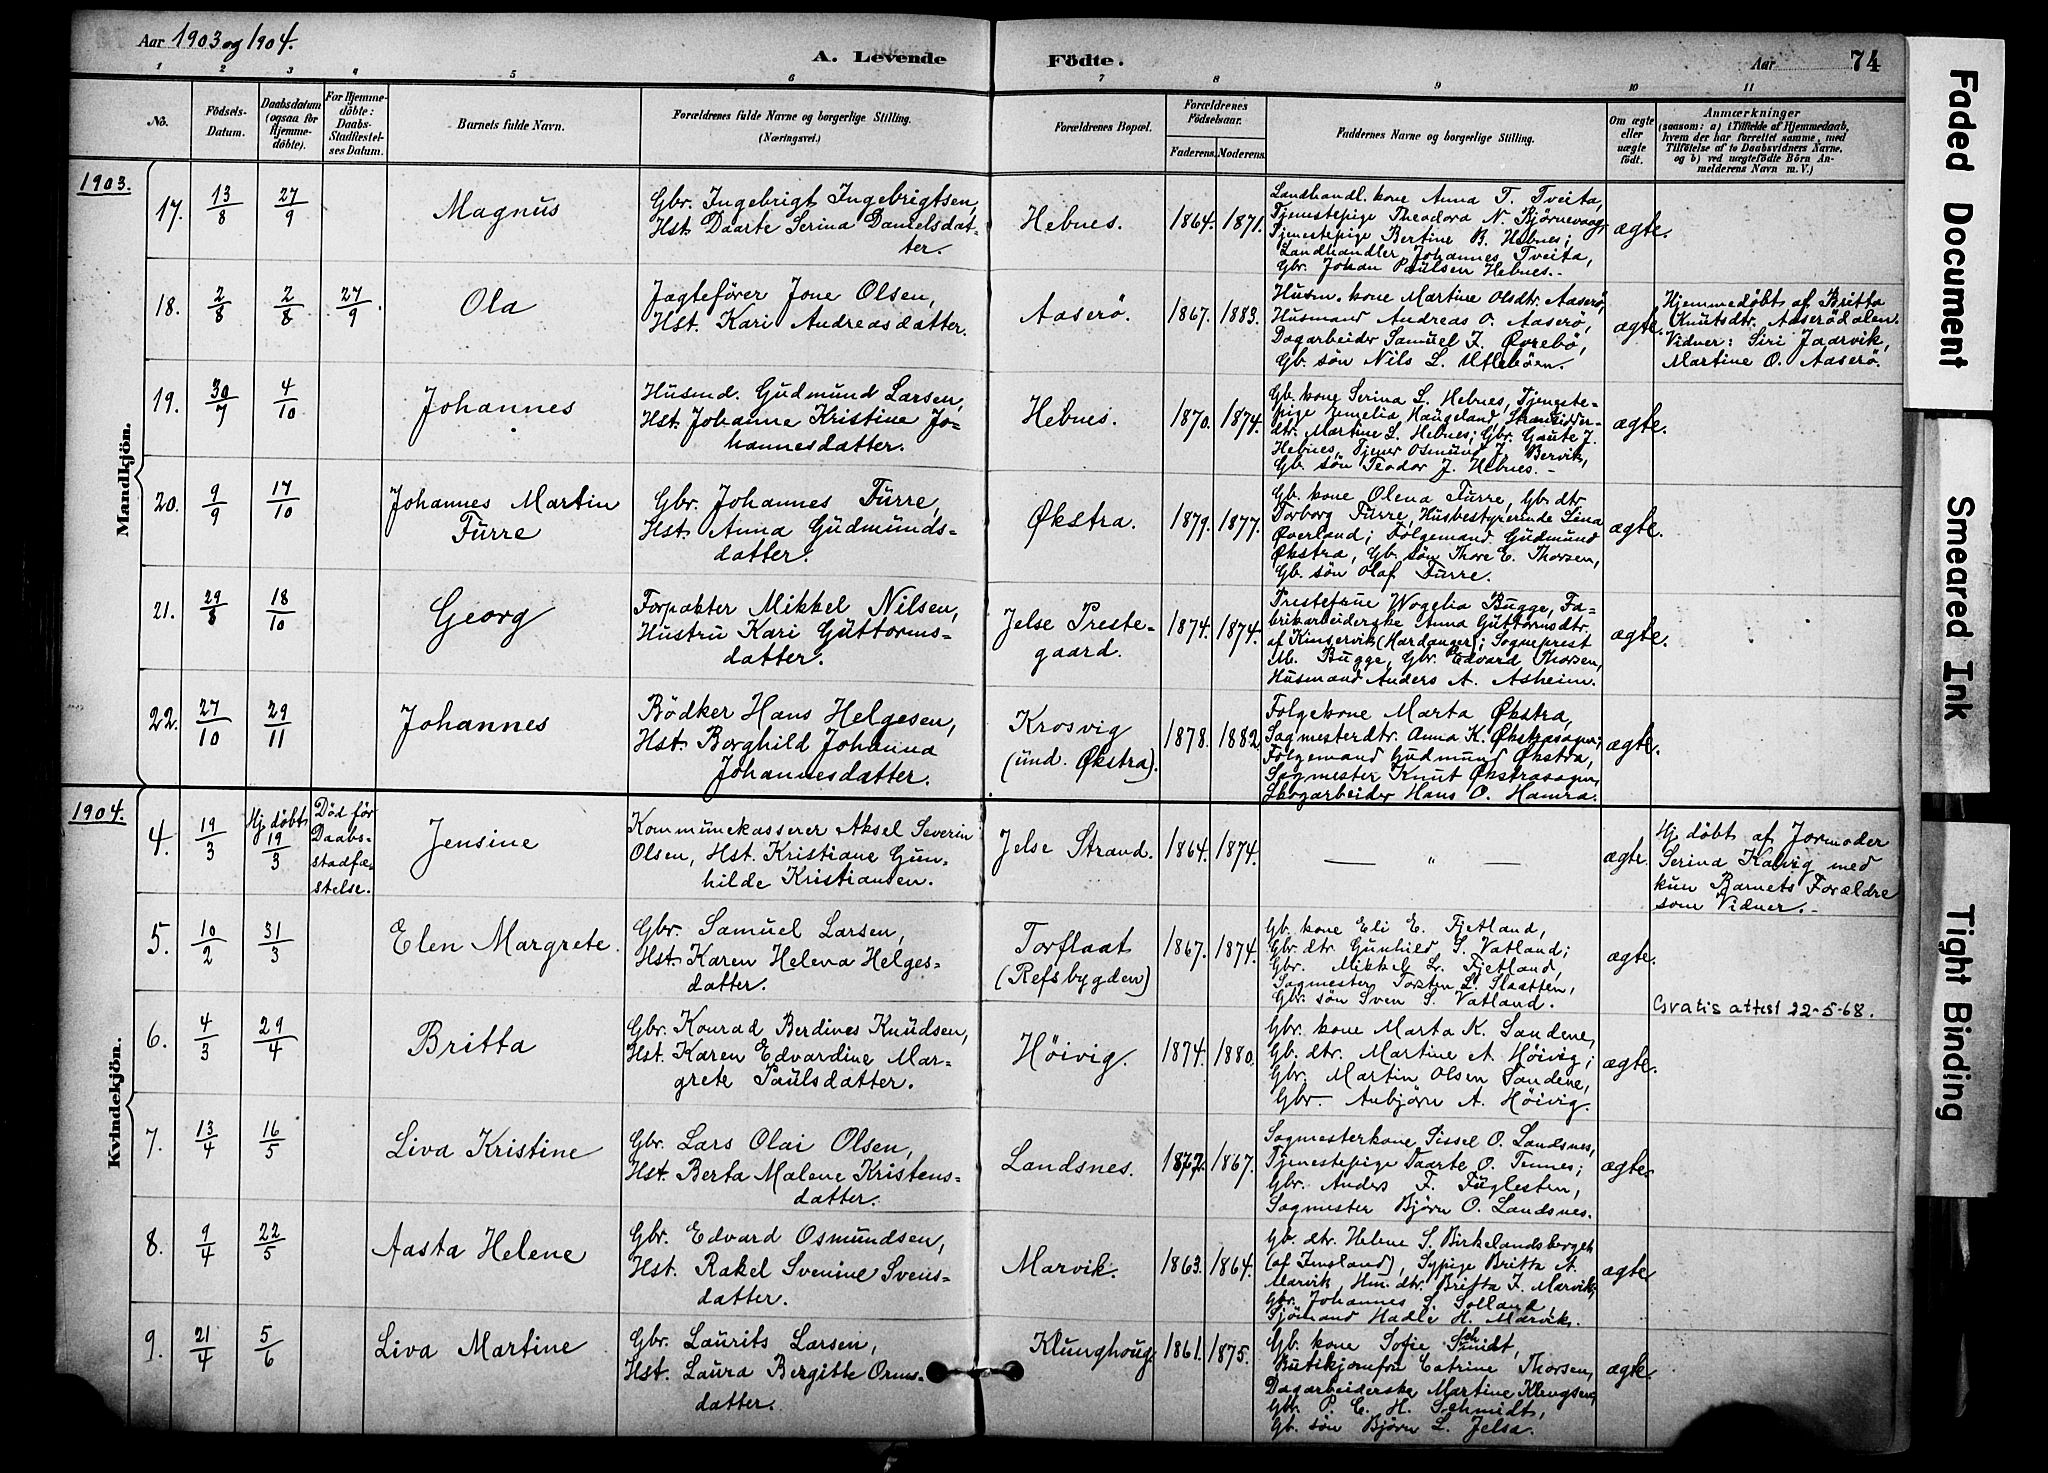 Aar 1903 og 1904.
A. Levende Födte.
Aar 74
1 2 3 4 5 6 7 8 9 10 11
No.
Födsels-
Datum.
Daabsdatum
(ogsaa for
Hjemme-
döbte).
For Hjemme-
döbte:
Daabs-
Stadfæstel-
ses Datum.
Barnets fulde Navn.
Forældrenes fulde Navne og borgerlige Stilling.
(Næringsvei.)
Forældrenes Bopæl.
Forældrenes
Födselsaar.
Faderens. Moderens.
Faddernes Navne og borgerlige Stilling.
Om ægte
eller
uægte
födt.
Anmærkninger
(saasom: a) i Tilfælde af Hjemmedaab,
hvem der har forrettet samme, med
Tilföielse af to Daabsvidners Navne,
og b) ved uægtefödte Börn An-
melderens Navn m. V.)
1903.
Mandkjön.
17. 13/8 27/9
Magnus
Gbr. Ingebrigt Ingebrigtsen,
Hst. Daarte Serina Danielsdat-
ter.
Hebnes. 1864. 1871.
Landhandl. kone Anna T. Tveita,
Tjenestepige Theodora N. Bjørnevaag,
Tjenestepige Bertine B. Hebnes;
Landhandler Johannes Tveita,
Gbr. Johan Paulsen Hebnes.-
ægte.
18. 2/8 2/8 27/9
Ola
Jagtefører Jone Olsen,
Hst. Kari Andreasdatter.
Aaserø. 1867. 1883.
Husm. kone Martine Olsdtr. Aaserø,
Husmand Andreas O. Aaserø,
Dagarbeider Samuel J. Øvrebø,
Gb. søn Nils L. Utlebøen.
ægte.
Hjemmedøbt af Britta
Knutsdtr. Aaserødalen.
Vidner: Siri Jaarvik,
Martine O. Aaserø.
19. 30/7 4/10
Johannes
Husmd. Gudmund Larsen,
Hst. Johanne Kristine Jo-
hannesdatter.
Hebnes. 1870. 1874.
Gb. kone Serina L. Hebnes, Tjeneste-
pige Haugeland,
dtr. Martine L. Hebnes; Gbr. Gaute J.
Hebnes, Tjener Osmund J. Bervik,
Gb. søn Teodor J. Hebnes.-
ægte.
20. 9/9 17/10
Johannes Martin
Furre
Gbr. Johannes Furre,
Hst. Anna Gudmunds-
datter.
Økstra. 1879. 1877.
Gb. kone Olena Furre, Gb. dtr.
Torborg Furre, Husbestyrerinde Lina
Øverland; Følgemand Gudmund
Økstra, Gb. søn Thore E. Thorsen,
Gb. søn Olaf Furre.
ægte.
21. 29/8 18/10
Georg
Forpakter Mikkel Nilsen,
Hustru Kari Guttorms-
datter.
Jelse Preste-
gaard.
1874. 1874.
Prestefrue Wogelia Bugge, Fa-
brikarbeiderske Anna Guttormsdtr.
af Kinservik (Hardanger); Sogneprest
M. Bugge, Gbr. Edvard Thorsen,
Husmand Anders A. Asheim.
ægte.
22. 27/10 29/11
Johannes
Bödker Hans Helgesen,
Hst. Borghild Johanna
Johannesdatter.
Krosvig
(und. Økstra).
1878. 1882.
Følgekone Marta Økstra,
Sagmesterdtr. Anna K. Økstrasagen;
Følgemand Gudmund Økstra,
Sagmester Knut Økstrasagen,
Skogarbeider Hans O. Hamra.
ægte.
1904.
Kvindekjön.
4. 19/3
Hj. døbt
19/3
Död før
Daabs-
stadfæ-
stelse.
Jensine
Kommunekasserer Aksel Severin
Olsen, Hst. Kristiane Gun-
hilde Kristiansen.
Jelse Strand. 1864. 1874.
— " —
ægte.
Hj. døbt af Jormoder
Serina Kalvig med
kun Barnets Forældre
som Vidner.-
5. 10/2 31/3
Elen Margrete.
Gbr. Samuel Larsen,
Hst. Karen Helena Helges-
datter.
Torflaat
(Refsbygden)
1867. 1874.
Gb. kone Eli E. Fjetland,
Gbr. dtr. Gunhild S. Vatland;
Gbr. Mikkel Lr. Fjetland,
Sagmester Torsten L. Slaatten,
Gbr. søn Sven S. Vatland.
ægte.
6. 4/3 29/4
Britta
Gbr. Konrad Berdines Knudsen,
Hst. Karen Edvardine Mar-
grete Paulsdatter.
Høivig. 1874. 1880.
Gbr. kone Marta K. Sandene,
Gb. dtr. Martine A. Høivig;
Gbr. Martin Olsen Sandene,
Gbr. Anbjørn A. Høivig.
ægte.
Gratis attest 22-5-68.
7. 13/4 16/5
Liva Kristine
Gbr. Lars Olai Olsen,
Hst. Berta Malene Kristens-
datter.
Landsnes. 1872. 1867.
Sagmesterkone Sissel O. Landsnes,
Tjenestepige Daarte O. Tennes;
Gbr. Anders F. Fuglesten,
Sagmester Bjørn O. Landsnes.
ægte.
8. 9/4 22/5
Aasta Helene
Gbr. Edvard Osmundsen,
Hst. Rakel Svenine Svens-
datter.
Marvik. 1863. 1864.
Gb. dtr. Helene S. Birkelandsberget
(af Imsland), Sypige Britta A.
Marvik, Hus. dtr. Britta F. Marvik;
Gbr. Johannes S. Solland,
Sjömand Hadle H. Marvik.
ægte
9. 21/4 5/6
Liva Martine
Gbr. Laurits Larsen,
Hst. Laura Bergitte Orms-
datter.
Klunghoug. 1861. 1875.
Gb. kone Sofie Schmidt,
Butikjomfru Catrine Thorsen,
Dagarbeiderske Martine Klengsen;
Gbr. P. C. H. Schmidt,
Gb. søn Bjørn L. Jelsa.
ægte.
Faded Document
Smeared Ink
Tight Binding